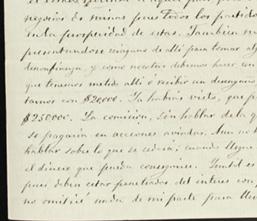 negocios de minas pues todos los partidos
en la prosperidad de estas. Tambien
presentandose ninguno de alli para tomar
denominaza, y como nosotros debemos hacer un
que tenemos metido alli ó recibir un desengaño
tamos con $20000. Ya habrás visto, que
$250000. La comision, sin hablar de la
se pagarán en acciones aviadas. Aun no
hablar sobre lo que se cederá; cuando llegue
el dinero que pueda conseguirse.
pues deben estar penetrados del interes con
no omitiré nada de mi parte para